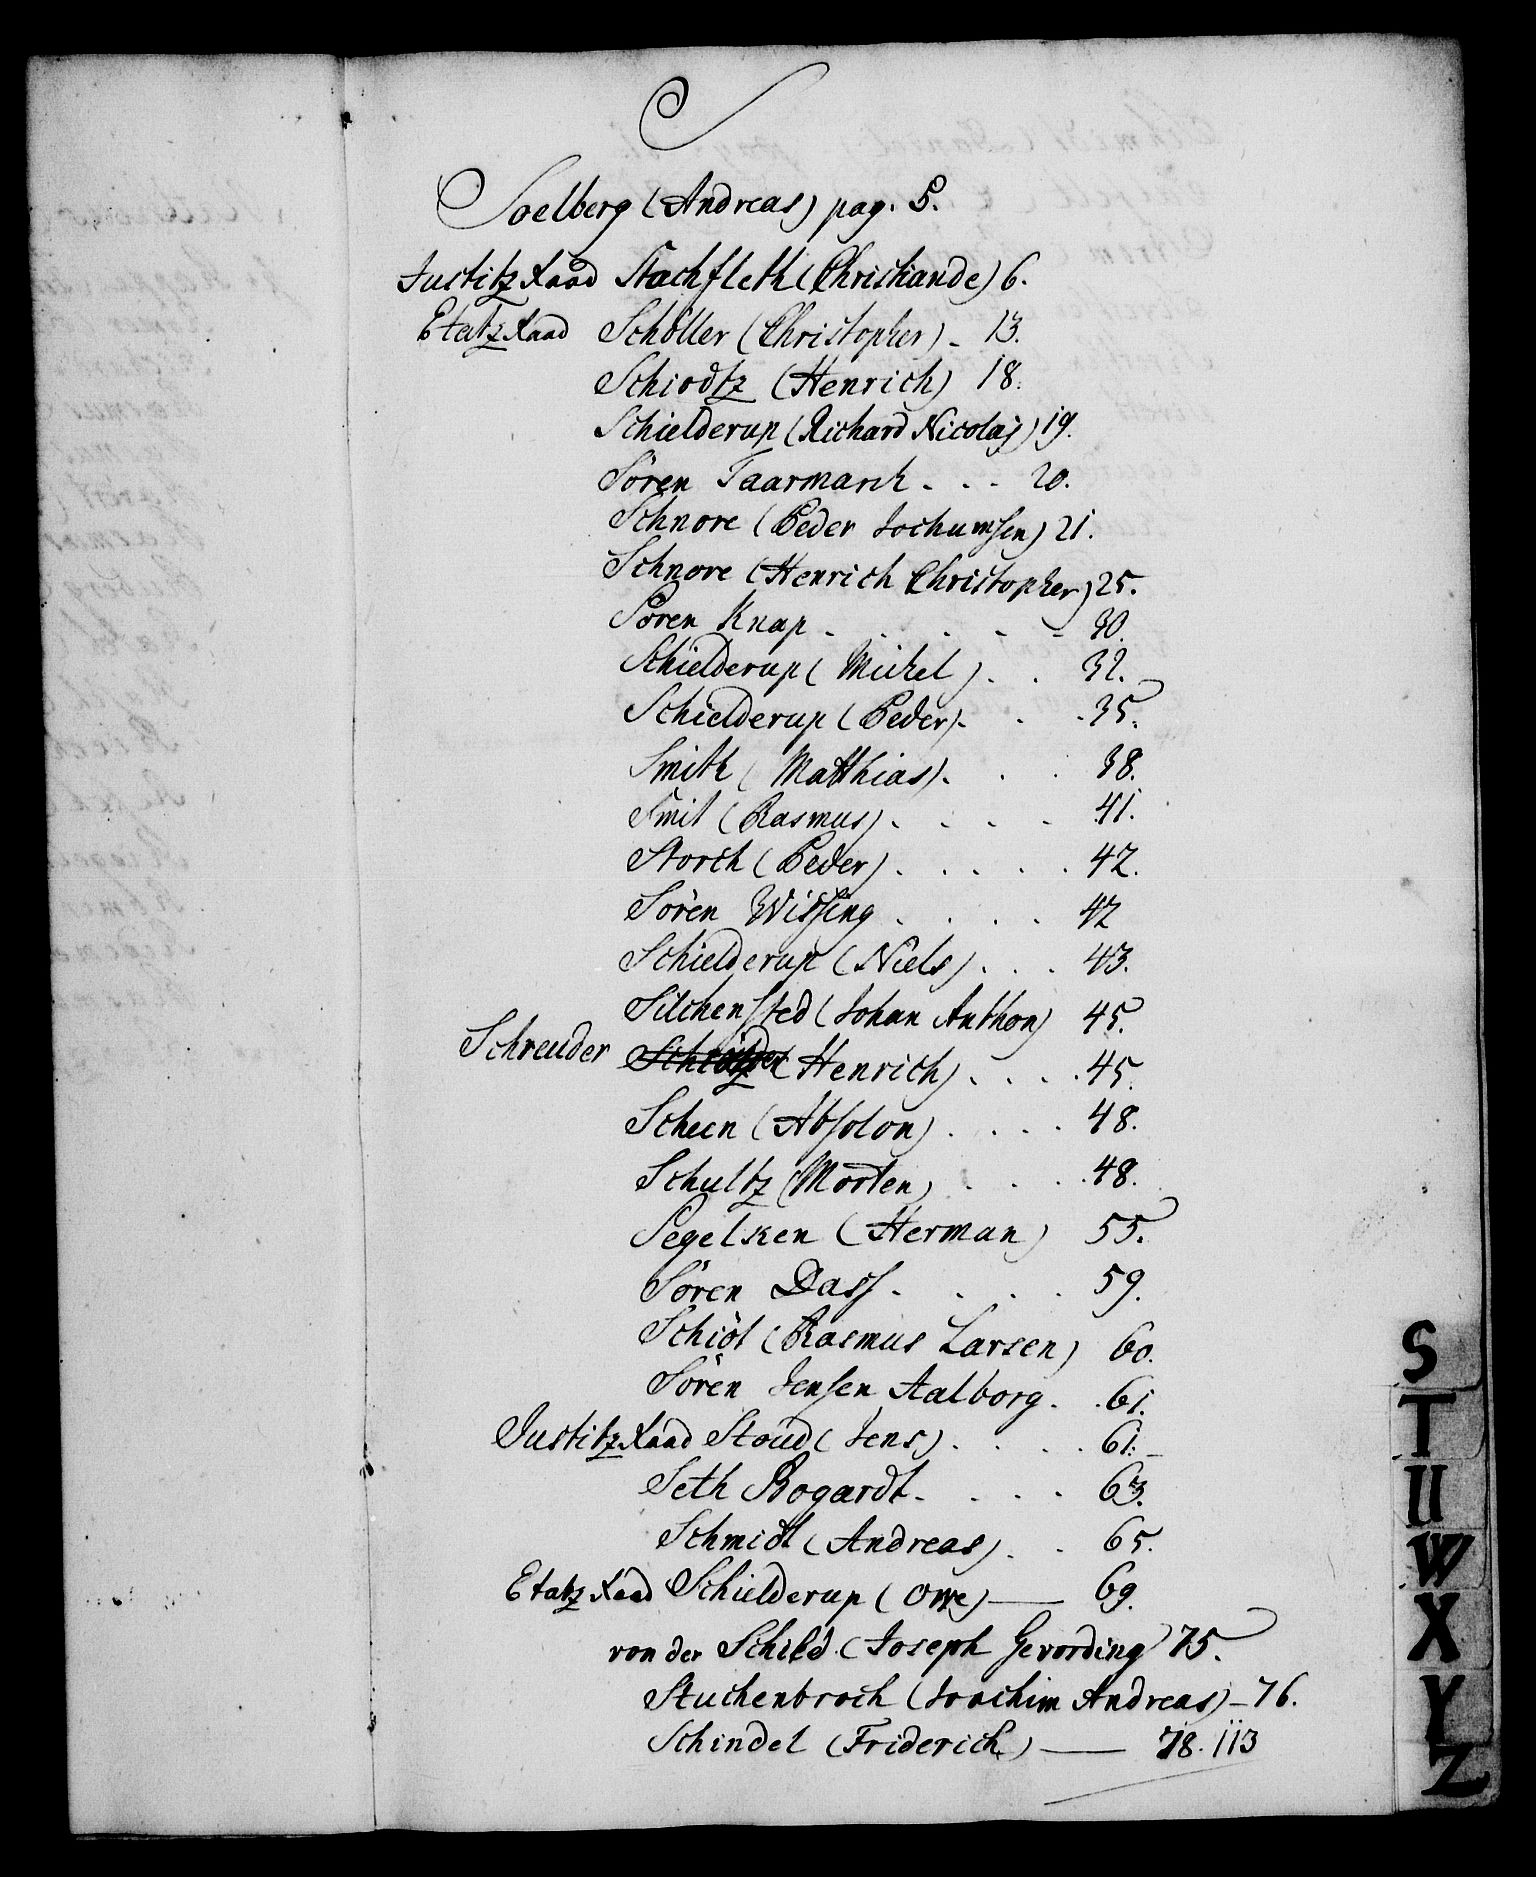 S
Soelberg (Andreas) pag. 5.
Justitz Raad Stachfleth (Christiande) 6.
Etatz Raad Schöller (Christopher) - 13.
Schiodtz (Henrich) 18.
Schielderup (Richard Nicolaj) 19.
Sören Taarmarck . . . 20.
Schnore (Peder Jochumsen) 21.
Schnore (Henrich Christopher) 25.
Sören Knap . . . . . 30.
Schielderup (Michel) . . 32.
Schielderup (Peder) . . . 35.
Smith (Matthias) . . . 38.
Smit (Rasmus) . . . . 41.
Storch (Peder) . . . . . 42.
Sören Wissing . . . . 42
Schielderup (Niels) . . . 43.
Silchensted (Johan Anthon) 45.
Schreuder (Henrich) . . . . 45.
Scheen (Absolon) . . . . 48.
Schultz (Morten) . . . . 48.
Segelken (Herman) 55.
Sören Dass . . . . 59.
Schiöt (Rasmus Larsen) 60.
Sören Jensen Aalborg . . 61.
Justitz Raad Stoud (Jens) . . . . 61. -
Seth Bogardt . . . . 63.
Schmidt (Andreas) . . 65.
Etatz Raad Schielderup (Owe) — 69.
von der Schild (Joseph Gevording) 75.
Stuchenbroch (Joachim Andreas) - 76.
Schindel (Friderich) — 78. 113
S
T
U
W
X
Y
Z